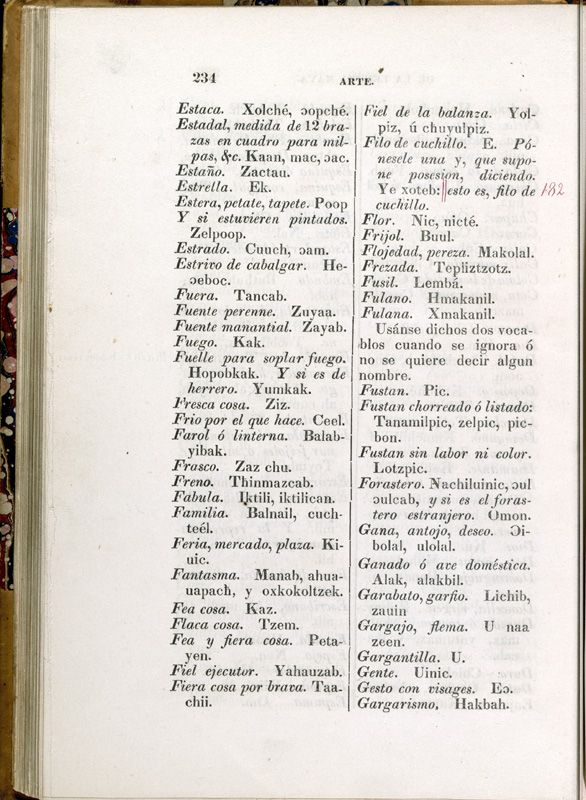 234
ARTE.
Estaca. Xolché, ɔopché.
Estadal, medida de 12 bra-
zas en cuadro para mil-
pas, &c. Kaan, mac, ɔac.
Estaño. Zactau.
Estrella. Ek.
Estera, petate, tapete. Poop
Y si estuvieren pintados.
Zelpoop.
Estrado. Cuuch, ɔam.
Estrivo de cabalgar. He-
ɔeboc.
Fuera. Tancab.
Fuente perenne. Zuyaa.
Fuente manantial. Zayab.
Fuego. Kak.
Fuelle para soplar fuego.
Hopobkak. Y si es de
herrero. Yumkak.
Fresca cosa. Ziz.
Frio por el que hace. Ceel.
Farol ó linterna. Balab-
yibak.
Frasco. Zaz chu.
Freno. Thinmazcab.
Fabula. Iktili, iktilican.
Familia. Balnail, cuch-
teél.
Feria, mercado, plaza. Ki-
uic.
Fantasma. Manab, ahua-
uapach, y oxkokoltzek.
Fea cosa. Kaz.
Flaca cosa. Tzem.
Fea y fiera cosa. Peta-
yen.
Fiel ejecutor. Yahauzab.
Fiera cosa por brava. Taa-
chii.
Fiel de la balanza. Yol-
piz, ú chuyulpiz.
Filo de cuchillo. E. Pó-
nesele una y, que supo-
ne posesion, diciendo.
Ye xoteb: esto es, filo de 182
cuchillo.
Flor. Nic, nicté.
Frijol. Buul.
Flojedad, pereza. Makolal.
Frezada. Tepliztzotz.
Fusil. Lembá.
Fulano. Hmakanil.
Fulana. Xmakanil.
Usánse dichos dos voca-
blos cuando se ignora ó
no se quiere decir algun
nombre.
Fustan. Pic.
Fustan chorreado ó listado:
Tanamilpic, zelpic, pic-
bon.
Fustan sin labor ni color.
Lotzpic.
Forastero. Nachiluinic, ɔul
ɔulcab, y si es el foras-
tero estranjero. Omon.
Gana, antojo, deseo. Ɔi-
bolal, ulolal.
Ganado ó ave doméstica.
Alak, alakbil.
Garabato, garfio. Lichib,
zauin
Gargajo, flema. U naa
zeen.
Gargantilla. U.
Gente. Uinic.
Gesto con visages. Eɔ.
Gargarismo, Hakbah.